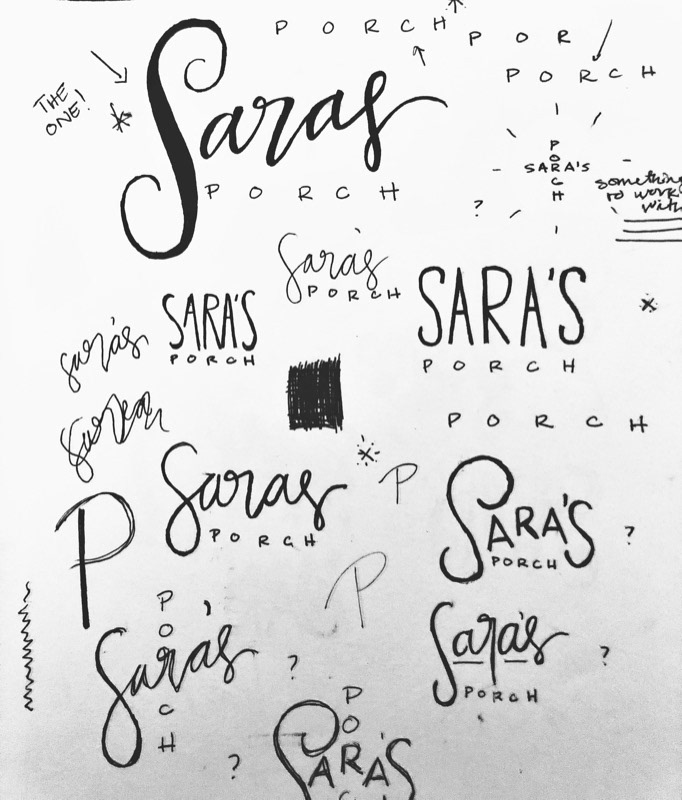 P O R C H
P O R
P O R C H
THE
ONE!
Saras
P O R C H
P
O
SARA'S
C
H
something
to work
with
?
Sara's
PORCH
SARA'S
PORCH
SARA'S
P O R C H
sara's
P O R C H
Saras
PORCH
P
SARA'S
PORCH
?
P
P
P
O
Sara's
C
H
?
Sara's
PORCH
?
P
O
SARA'S
?